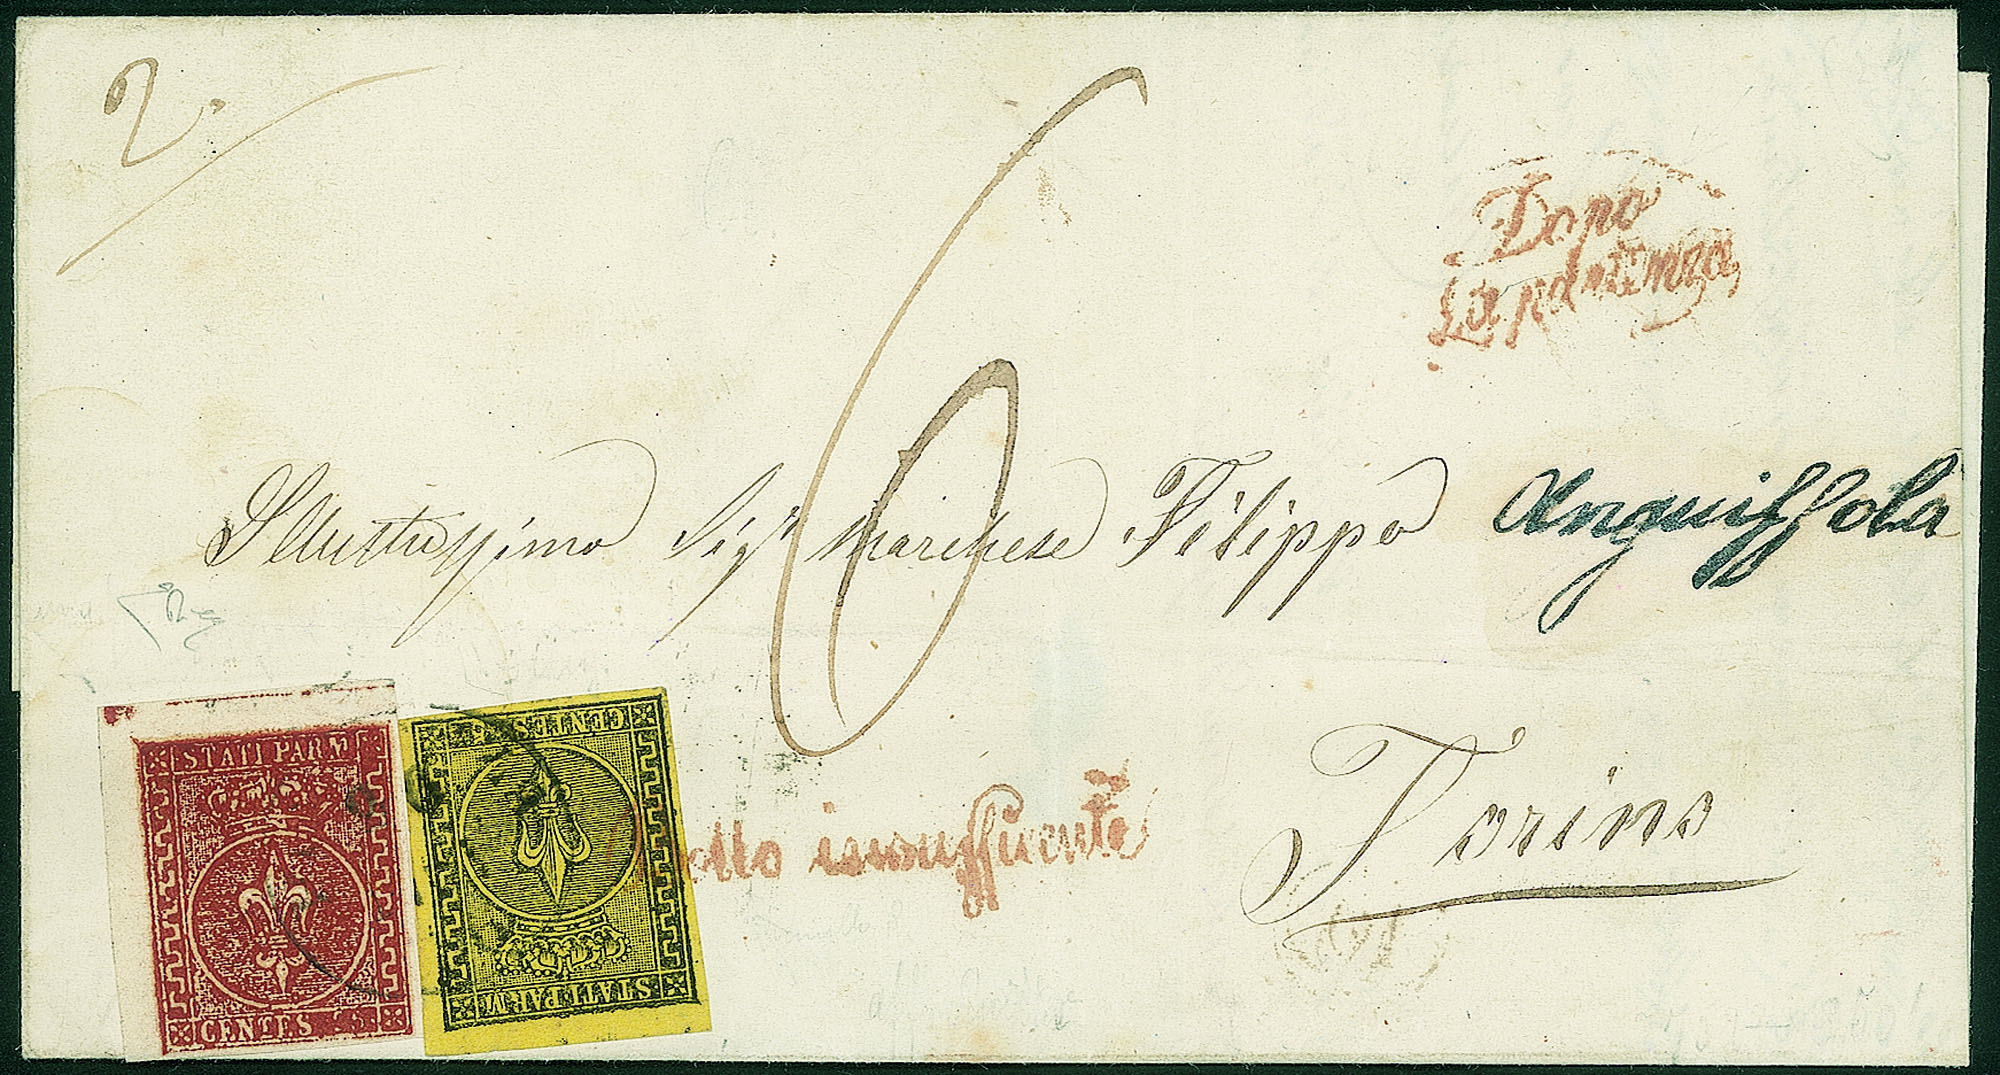 2.
6
Dopo
la partenza
Illustrissimo Sigr Marchese Filippo Anguissola
Torino
insufficiente
STATI PARM
CENTES 25
CENTES 5
STATI PARM